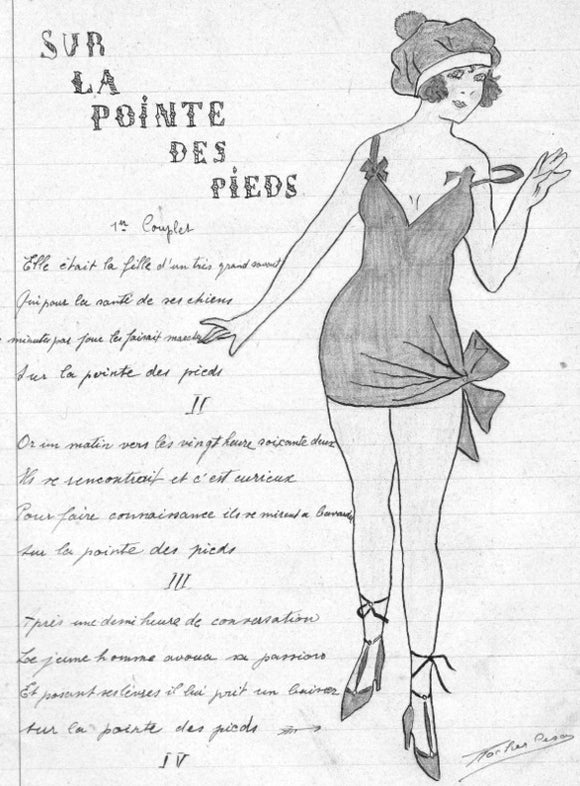 SUR
LA
POINTE
DES
PIEDS
1er Couplet
Elle était la fille d'un très grand savant
Qui pour la santé de ses chiens
minutes par jour les faisait marcher
Sur la pointe des pieds
II
Or un matin vers les vingt heure soixante deux
Ils se rencontrait et c'est curieux
Pour faire connaissance ils se mirent a bavarder
Sur la pointe des pieds
III
Après une demi heure de conversation
Le jeune homme avoua sa passion
Et posant ses lèvres il lui prit un baiser
Sur la pointe des pieds
IV